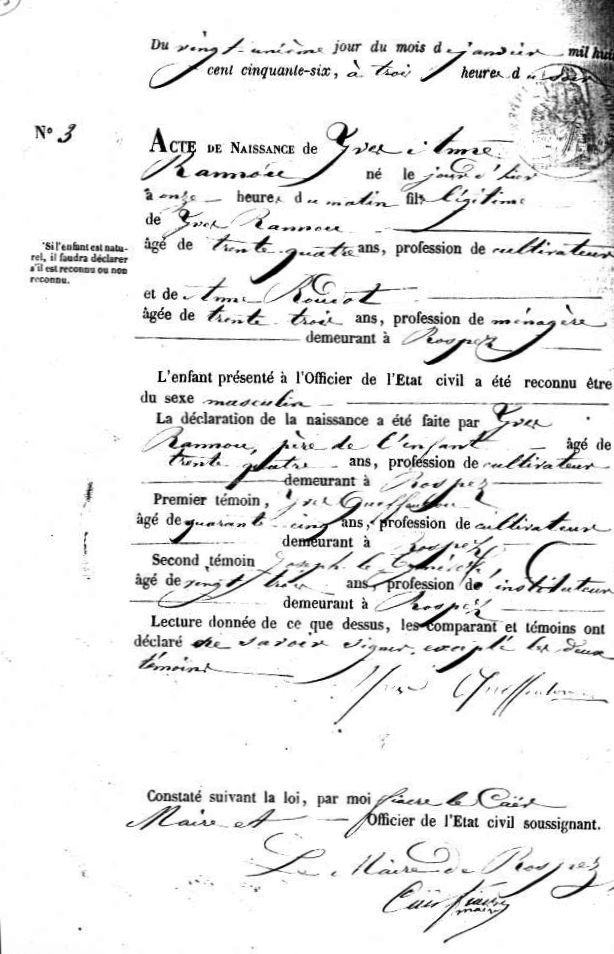 Du vingt-unième jour du mois de janvier mil huit
cent cinquante-six, à trois heures du soir
N° 3
ACTE DE NAISSANCE de Yves
né le jour d'hier
à onze heures du matin fils légitime
de Yves Rannou
âgé de trente quatre ans, profession de cultivateur
*Si l'enfant est natu-
rel, il faudra déclarer
s'il est reconnu ou non
reconnu.
et de Anne
âgée de trente trois ans, profession de ménagère
demeurant à Rospez
L'enfant présenté à l'Officier de l'Etat civil a été reconnu être
du sexe masculin
La déclaration de la naissance a été faite par Yves
Rannou, père de l'enfant âgé de
trente quatre ans, profession de cultivateur
demeurant à Rospez
Premier témoin, Yves
âgé de quarante cinq ans, profession de cultivateur
demeurant à Rospez
Second témoin Joseph le
âgé de vingt trois ans, profession d'instituteur
demeurant à Rospez
Lecture donnée de ce que dessus, les comparant et témoins ont
déclaré ne savoir signer, excepté les deux
témoins
Constaté suivant la loi, par moi fiacre le Caër
Maire et Officier de l'Etat civil soussignant.
Le Maire de Rospez